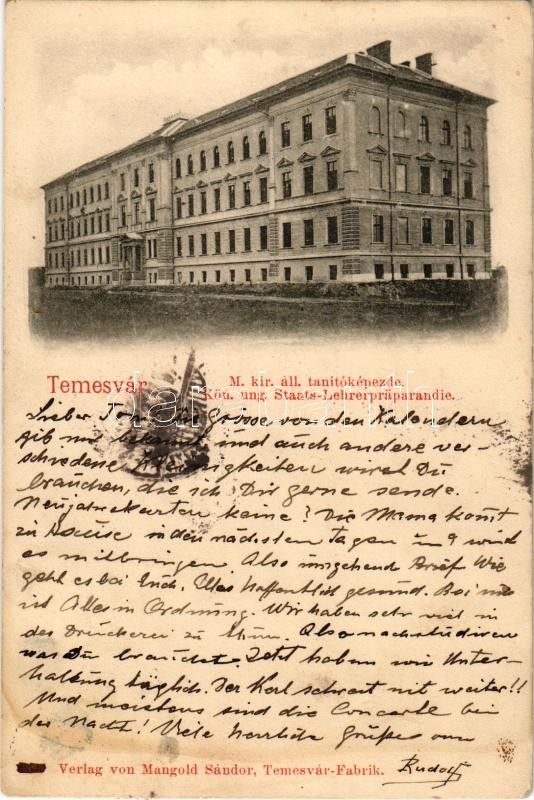 Temesvár
M. kir. áll. tanitóképezde.
Kön. ung. Staats-Lehrerpräparandie.
darabanth
Lieber Die Grösse von den Kalendern
gib mir bekannt und auch andere ver-
schiedene Kleinigkeiten wirst Du
brauchen, die ich Dir gerne sende.
Neujahrskarten keine? Die Mama komt
zu Hause in den nächsten Tagen u wird
es mitbringen. Also umgehend Brief Wie
geht es bei Euch. Alles hoffentlich gesund. Bei uns
ist Alles in Ordnung. Wir haben sehr viel in
der Druckerei zu thun. Also nachstudiren
was Du brauchst. Jetzt haben wir Unter-
haltung täglich. Der Karl schreit mit weiter!!
Und meistens sind die Concerte bei
der Nacht! Viele herzliche Grüße von
Rudolf
Verlag von Mangold Sándor, Temesvár-Fabrik.